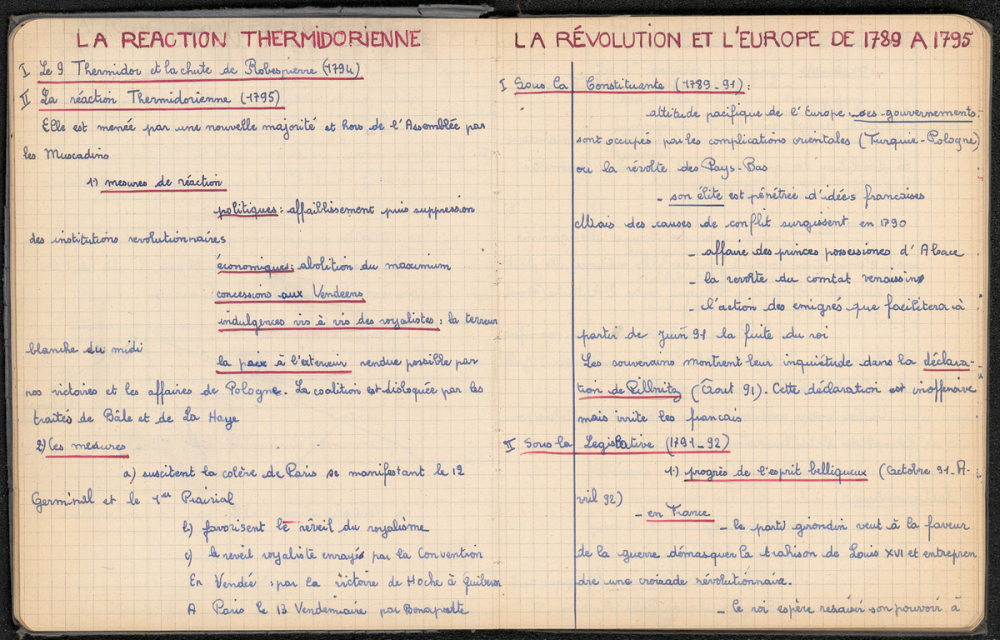 LA REACTION THERMIDORIENNE
I Le 9 Thermidor et la chute de Robespierre (1794)
II La réaction Thermidorienne (1795)
Elle est menée par une nouvelle majorité et hors de l'Assemblée par
les Muscadins
1°) mesures de réaction
politiques : affaiblissement puis suppression
des institutions revolutionnaires
économiques : abolition du maximum
concessions aux Vendeens
indulgences vis à vis des royalistes : la terreur
blanche du midi
la paix à l'exterieur rendue possible par
nos victoires et les affaires de Pologne. La coalition est disloquée par les
traités de Bâle et de La Haye
2°) Ces mesures
a) suscitent la colère de Paris se manifestant le 12
Germinal et le 1er Prairial
b) favorisent le réveil du royalisme
c) le reveil royaliste enrayé par la Convention
En Vendée : par la victoire de Hoche à Quiberon
A Paris le 13 Vendemiaire par Bonaparte
LA RÉVOLUTION ET L'EUROPE DE 1789 A 1795
I Sous la Constituante (1789-91) :
attitude pacifique de l'Europe : ses gouvernements
sont occupés par les complications orientales (Turquie-Pologne)
ou la révolte des Pays-Bas
- son élite est pénétrée d'idées françaises
Mais des causes de conflit surgissent en 1790
- affaire des princes possessiones d'Alsace
- la revolte du comtat venaissin
- l'action des emigrés que facilitera à
partir de Juin 91 la fuite du roi
Les souverains montrent leur inquiétude dans la déclara-
tion de Pillnitz (Août 91). Cette déclaration est inoffensive
mais irrite les français
II Sous la Legislative (1791-92)
1°) progrès de l'esprit belliqueux (Octobre 91-A-
vril 92)
- en France
- le parti girondin veut à la faveur
de la guerre démasquer la trahison de Louis XVI et entrepren
dre une croisade révolutionnaire.
- le roi espère ressaisir son pouvoir à